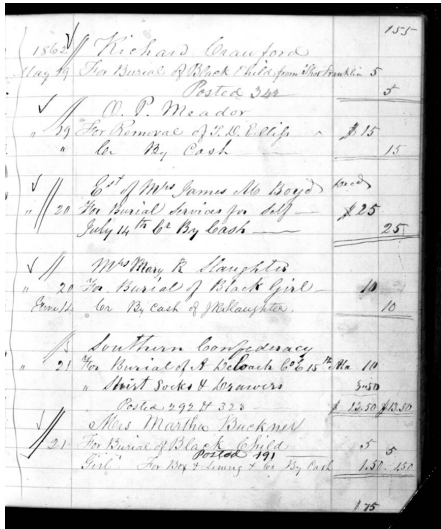 155
1862 Richard Crawford
May 19 For Burial of Black Child from Thos Franklin 5
Posted 342 5
O. P. Meador
" 29 For Removal of T. D. Ellis $15
" Cr By Cash 15
Est of Mrs James M. Boyd
" 20 For Burial Services for Self $25
July 14th Cr By Cash 25
Mrs Mary R Slaughter
" 20 For Burial of Black Girl 10
14 Cr By Cash of Slaughter 10
Southern Confederacy
" 21 For Burial of A DeLoach Co E 15th Ala 10
" Shirt Socks & Drawers
Posted 292 & 323 $ 13.50 $13.50
Mrs Martha Buckner
" 21 For Burial of Black Child 5 5
Posted 191
Girl For Box & Lining & Cr By Cash 1.50
175